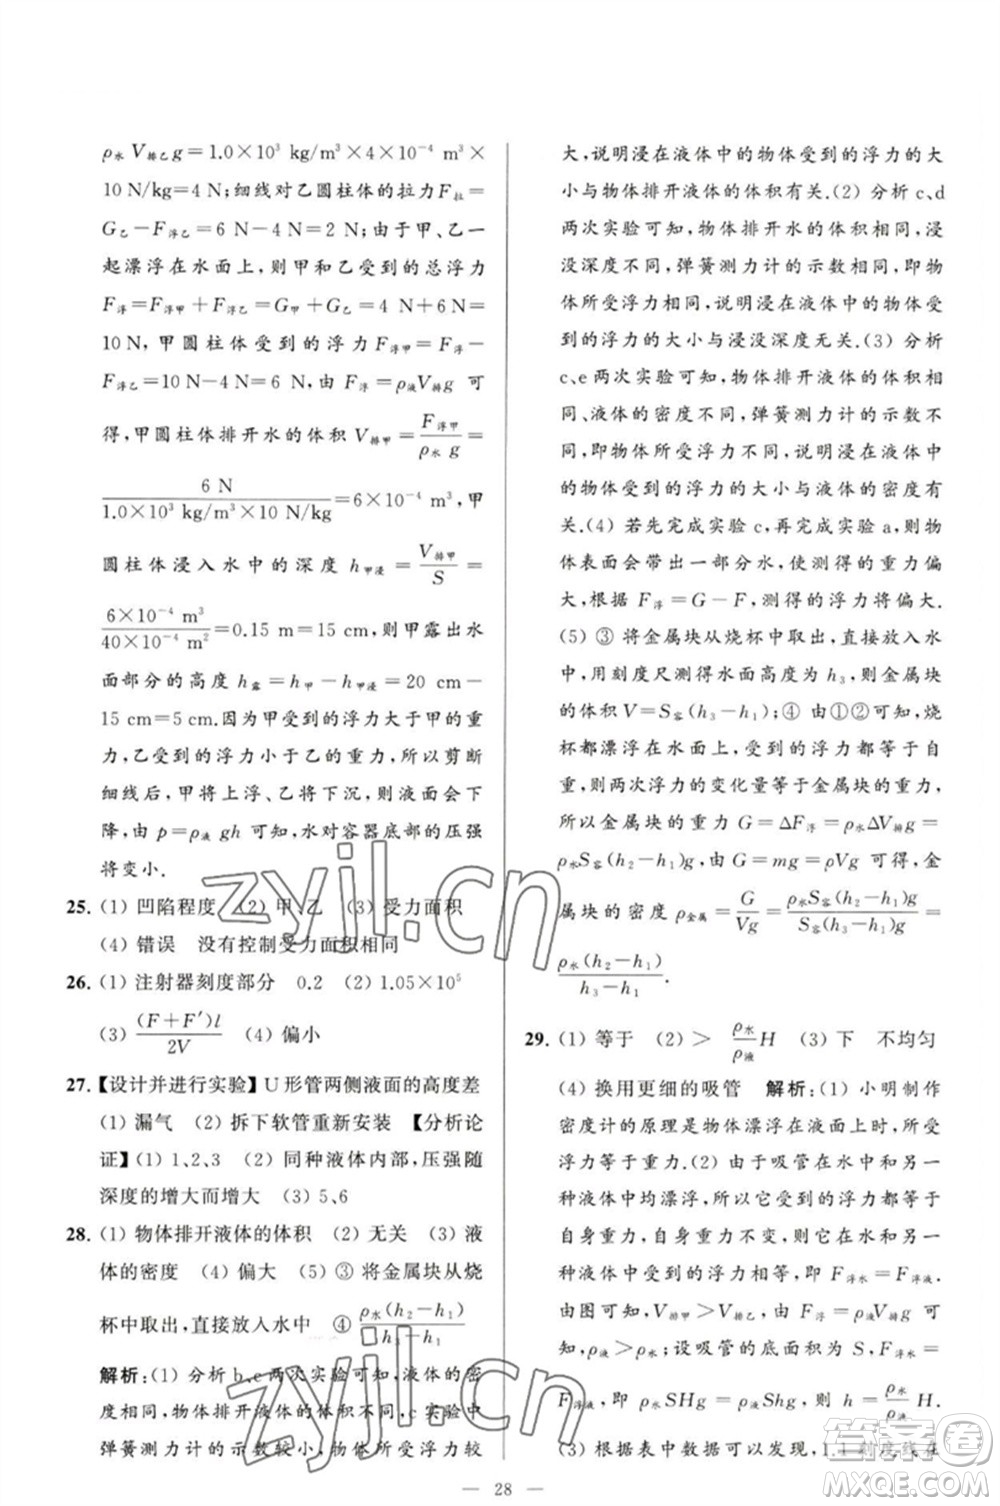 ρ水 V排乙g=1.0×10³ kg/m³×4×10⁻⁴ m³×
10 N/kg=4 N;细线对乙圆柱体的拉力F拉=
G乙-F浮乙=6 N-4 N=2 N;由于甲、乙一
起漂浮在水面上,则甲和乙受到的总浮力
F浮=F浮甲+F浮乙=G甲+G乙=4 N+6 N=
10 N,甲圆柱体受到的浮力F浮甲=F浮-
F浮乙=10 N-4 N=6 N,由 F浮=ρ液V排g 可
得,甲圆柱体排开水的体积V排甲=F浮甲/(ρ水 g)=
6 N/(1.0×10³ kg/m³×10 N/kg)=6×10⁻⁴ m³,甲
圆柱体浸入水中的深度 h甲浸=V排甲/S=
(6×10⁻⁴ m³)/(40×10⁻⁴ m²)=0.15 m=15 cm,则甲露出水
面部分的高度 h露=h甲-h甲浸=20 cm-
15 cm=5 cm.因为甲受到的浮力大于甲的重
力,乙受到的浮力小于乙的重力,所以剪断
细线后,甲将上浮、乙将下沉,则液面会下
降,由 p=ρ液 gh 可知,水对容器底部的压强
将变小.
25.(1) 凹陷程度 (2) 甲、乙 (3) 受力面积
(4) 错误 没有控制受力面积相同
26.(1) 注射器刻度部分 0.2 (2) 1.05×10⁵
(3) (F+F′)l/2V (4) 偏小
27.【设计并进行实验】U 形管两侧液面的高度差
(1) 漏气 (2) 拆下软管重新安装 【分析论
证】(1) 1、2、3 (2) 同种液体内部,压强随
深度的增大而增大 (3) 5、6
28.(1) 物体排开液体的体积 (2) 无关 (3) 液
体的密度 (4) 偏大 (5) ③ 将金属块从烧
杯中取出,直接放入水中 ④ ρ水(h₂-h₁)/(h₃-h₁)
解析:(1) 分析 b、c 两次实验可知,液体的密
度相同,物体排开液体的体积不同,c 实验中
弹簧测力计的示数较小,物体所受浮力较
大,说明浸在液体中的物体受到的浮力的大
小与物体排开液体的体积有关.(2) 分析 c、d
两次实验可知,物体排开水的体积相同,浸
没深度不同,弹簧测力计的示数相同,即物
体所受浮力相同,说明浸在液体中的物体受
到的浮力的大小与浸没深度无关.(3) 分析
c、e 两次实验可知,物体排开液体的体积相
同、液体的密度不同,弹簧测力计的示数不
同,即物体所受浮力不同,说明浸在液体中的
物体受到的浮力的大小与液体的密度有
关.(4) 若先完成实验 c,再完成实验 a,则物
体表面会带出一部分水,使测得的重力偏
大,根据 F浮=G-F,测得的浮力将偏大.
(5) ③ 将金属块从烧杯中取出,直接放入水
中,用刻度尺测得水面高度为 h₃,则金属块
的体积 V=S容(h₃-h₁);④ 由①②可知,烧
杯都漂浮在水面上,受到的浮力都等于自
重,则两次浮力的变化量等于金属块的重力,
所以金属块的重力 G=ΔF浮=ρ水ΔV排g=
ρ水S容(h₂-h₁)g;由 G=mg=ρVg 可得,金
属块的密度 ρ金属=G/Vg=ρ水S容(h₂-h₁)g/S容(h₃-h₁)g=
ρ水(h₂-h₁)/(h₃-h₁).
29.(1) 等于 (2) > (ρ水/ρ液)H (3) 下 不均匀
(4) 换用更细的吸管 解析:(1) 小明制作
密度计的原理是物体漂浮在液面上时,所受
浮力等于重力.(2) 由于吸管在水中和另一
种液体中均漂浮,所以它受到的浮力都等于
自身重力,由于自身重力不变,则在水和另
一种液体中受到的浮力相等,即 F浮水=F浮液.
由图可知,V排甲>V排乙,根据 F浮=ρ液V排g 可知,
ρ液>ρ水;设吸管的底面积为 S,F浮水=
F浮液,即 ρ水SHg=ρ液Shg,则 h=(ρ水/ρ液)H.
(3) 根据表中数据可以发现,1.1 刻度线在
— 28 —
zyjl.cn
zyjl.cn
答案圈
MXQE.COM